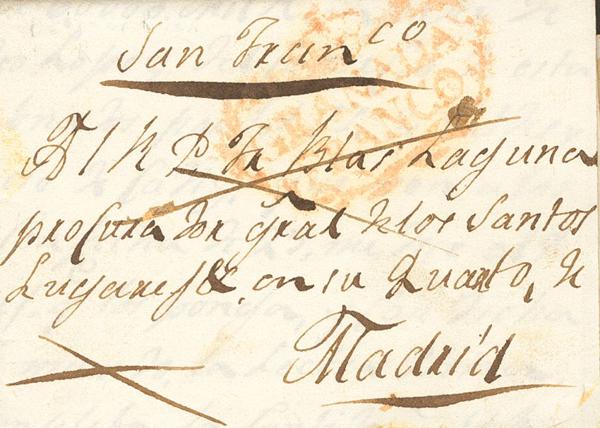 San Fran.co
GRANADA
FRANCO
Al R P Fr Blas Laguna
procurador gral de los Santos
Lugares &. en su Quarto, de
Madrid